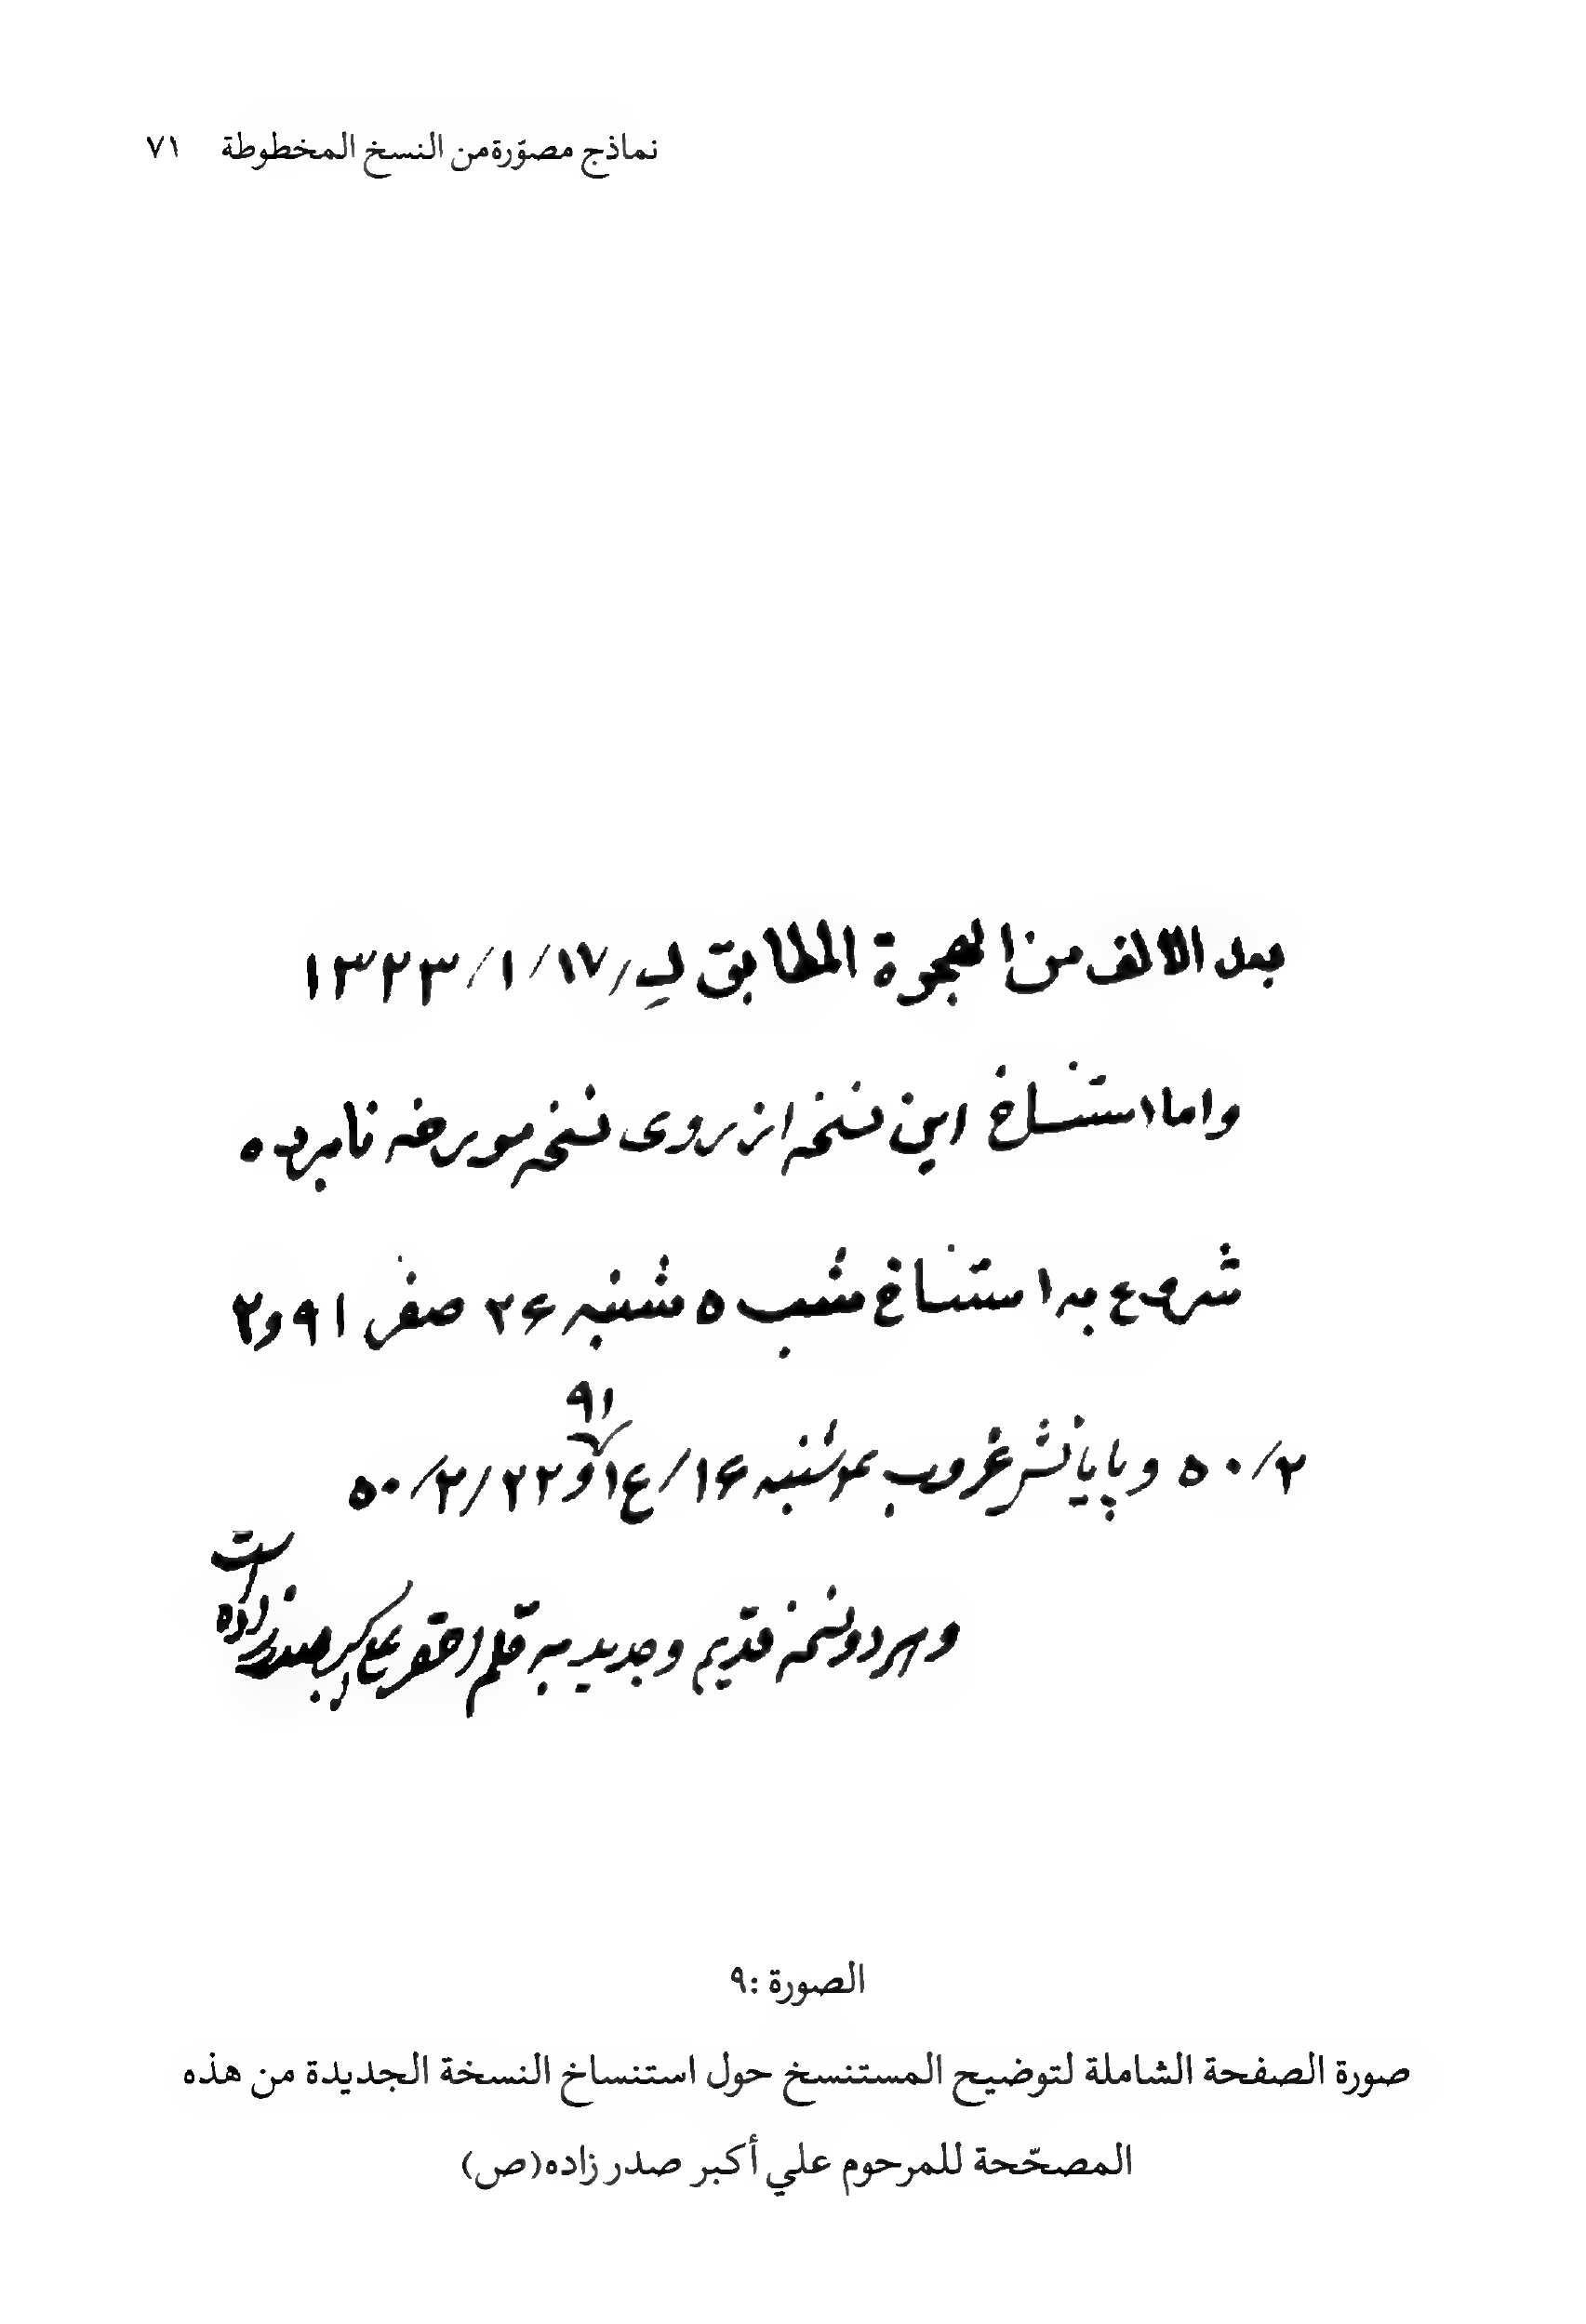 نماذج مصوّرة من النسخ المخطوطة ٧١
بعد الالف من الهجرة المطابق لـ ١٣٢٣/١/١٧
واما استنساخ این نسخه از روی نسخه مورخه نامبرده
شروع به استنساخ شب ۵ شنبه ۲۶ صفر ۹۱ و ۲
۵۰/۲ و پایانش غروب شنبه ۱۶/ع۱ ۹۱ و ۲۲/۲/۵۰
و هر دو نسخه قدیم و جدید به قلم احقر علی اکبر صدرزاده است
الصورة :٩
صورة الصفحة الشاملة لتوضيح المستنسخ حول استنساخ النسخة الجديدة من هذه
المصحّحة للمرحوم علي أكبر صدر زاده(ص)